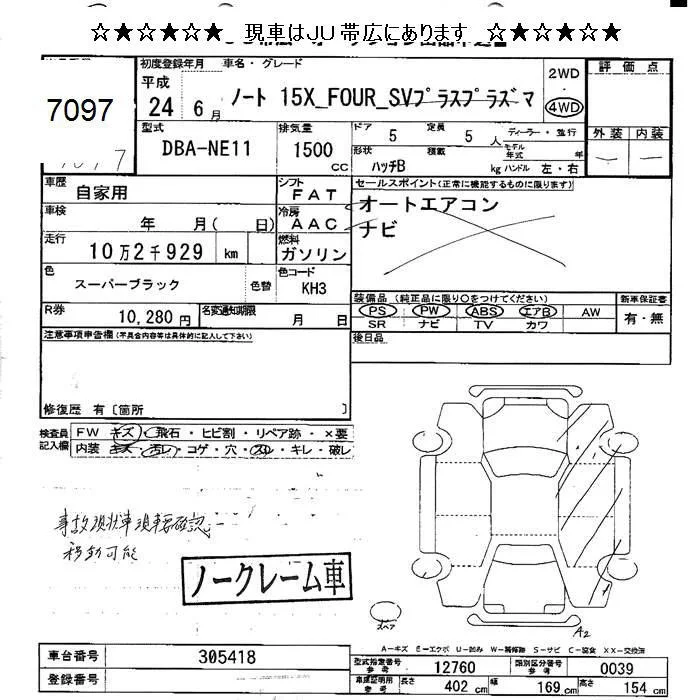 ☆★☆★☆★ 現車はJU帯広にあります ☆★☆★☆★
7097
初度登録年月 車名・グレード
平成
24 6月 ノート 15X_FOUR_SVプラスプラズマ
2WD
4WD
評価点
外装 内装
型式 排気量
DBA-NE11 1500 CC
ドア 5 定員 5 人 ディーラー・並行
形状 ハッチB 積載 kg
モデル年式 年
ハンドル 左・右
車歴 自家用
シフト FAT
車検 年 月( 日)
冷房 AAC
走行 10万2千929 km
燃料 ガソリン
色 スーパーブラック 色替
色コード KH3
R券 10,280円 名変通知期限 月 日
セールスポイント(正常に機能するものに限ります)
オートエアコン
ナビ
装備品 (純正品に限り○をつけてください) 新車保証書
PS PW ABS エアB AW 有・無
SR ナビ TV カワ
後日品
注意事項申告欄(不具合内容等は具体的に記入して下さい)
修復歴 有〔箇所 〕
検査員記入欄
FW キズ・飛石・ヒビ割・リペア跡・×要
内装 キズ・汚レ・コゲ・穴・スレ・キレ・破レ
事故現状車現車要確認
移動可能
ノークレーム車
スペア
A2
A-キズ E-エクボ U-凹み W-補修跡 S-サビ C-腐食 XX-交換済
車台番号 305418
登録番号
型式指定番号 参考 12760 類別区分番号 参考 0039
車庫証明用 参考 長さ 402 cm 幅 169 cm 高さ 154 cm